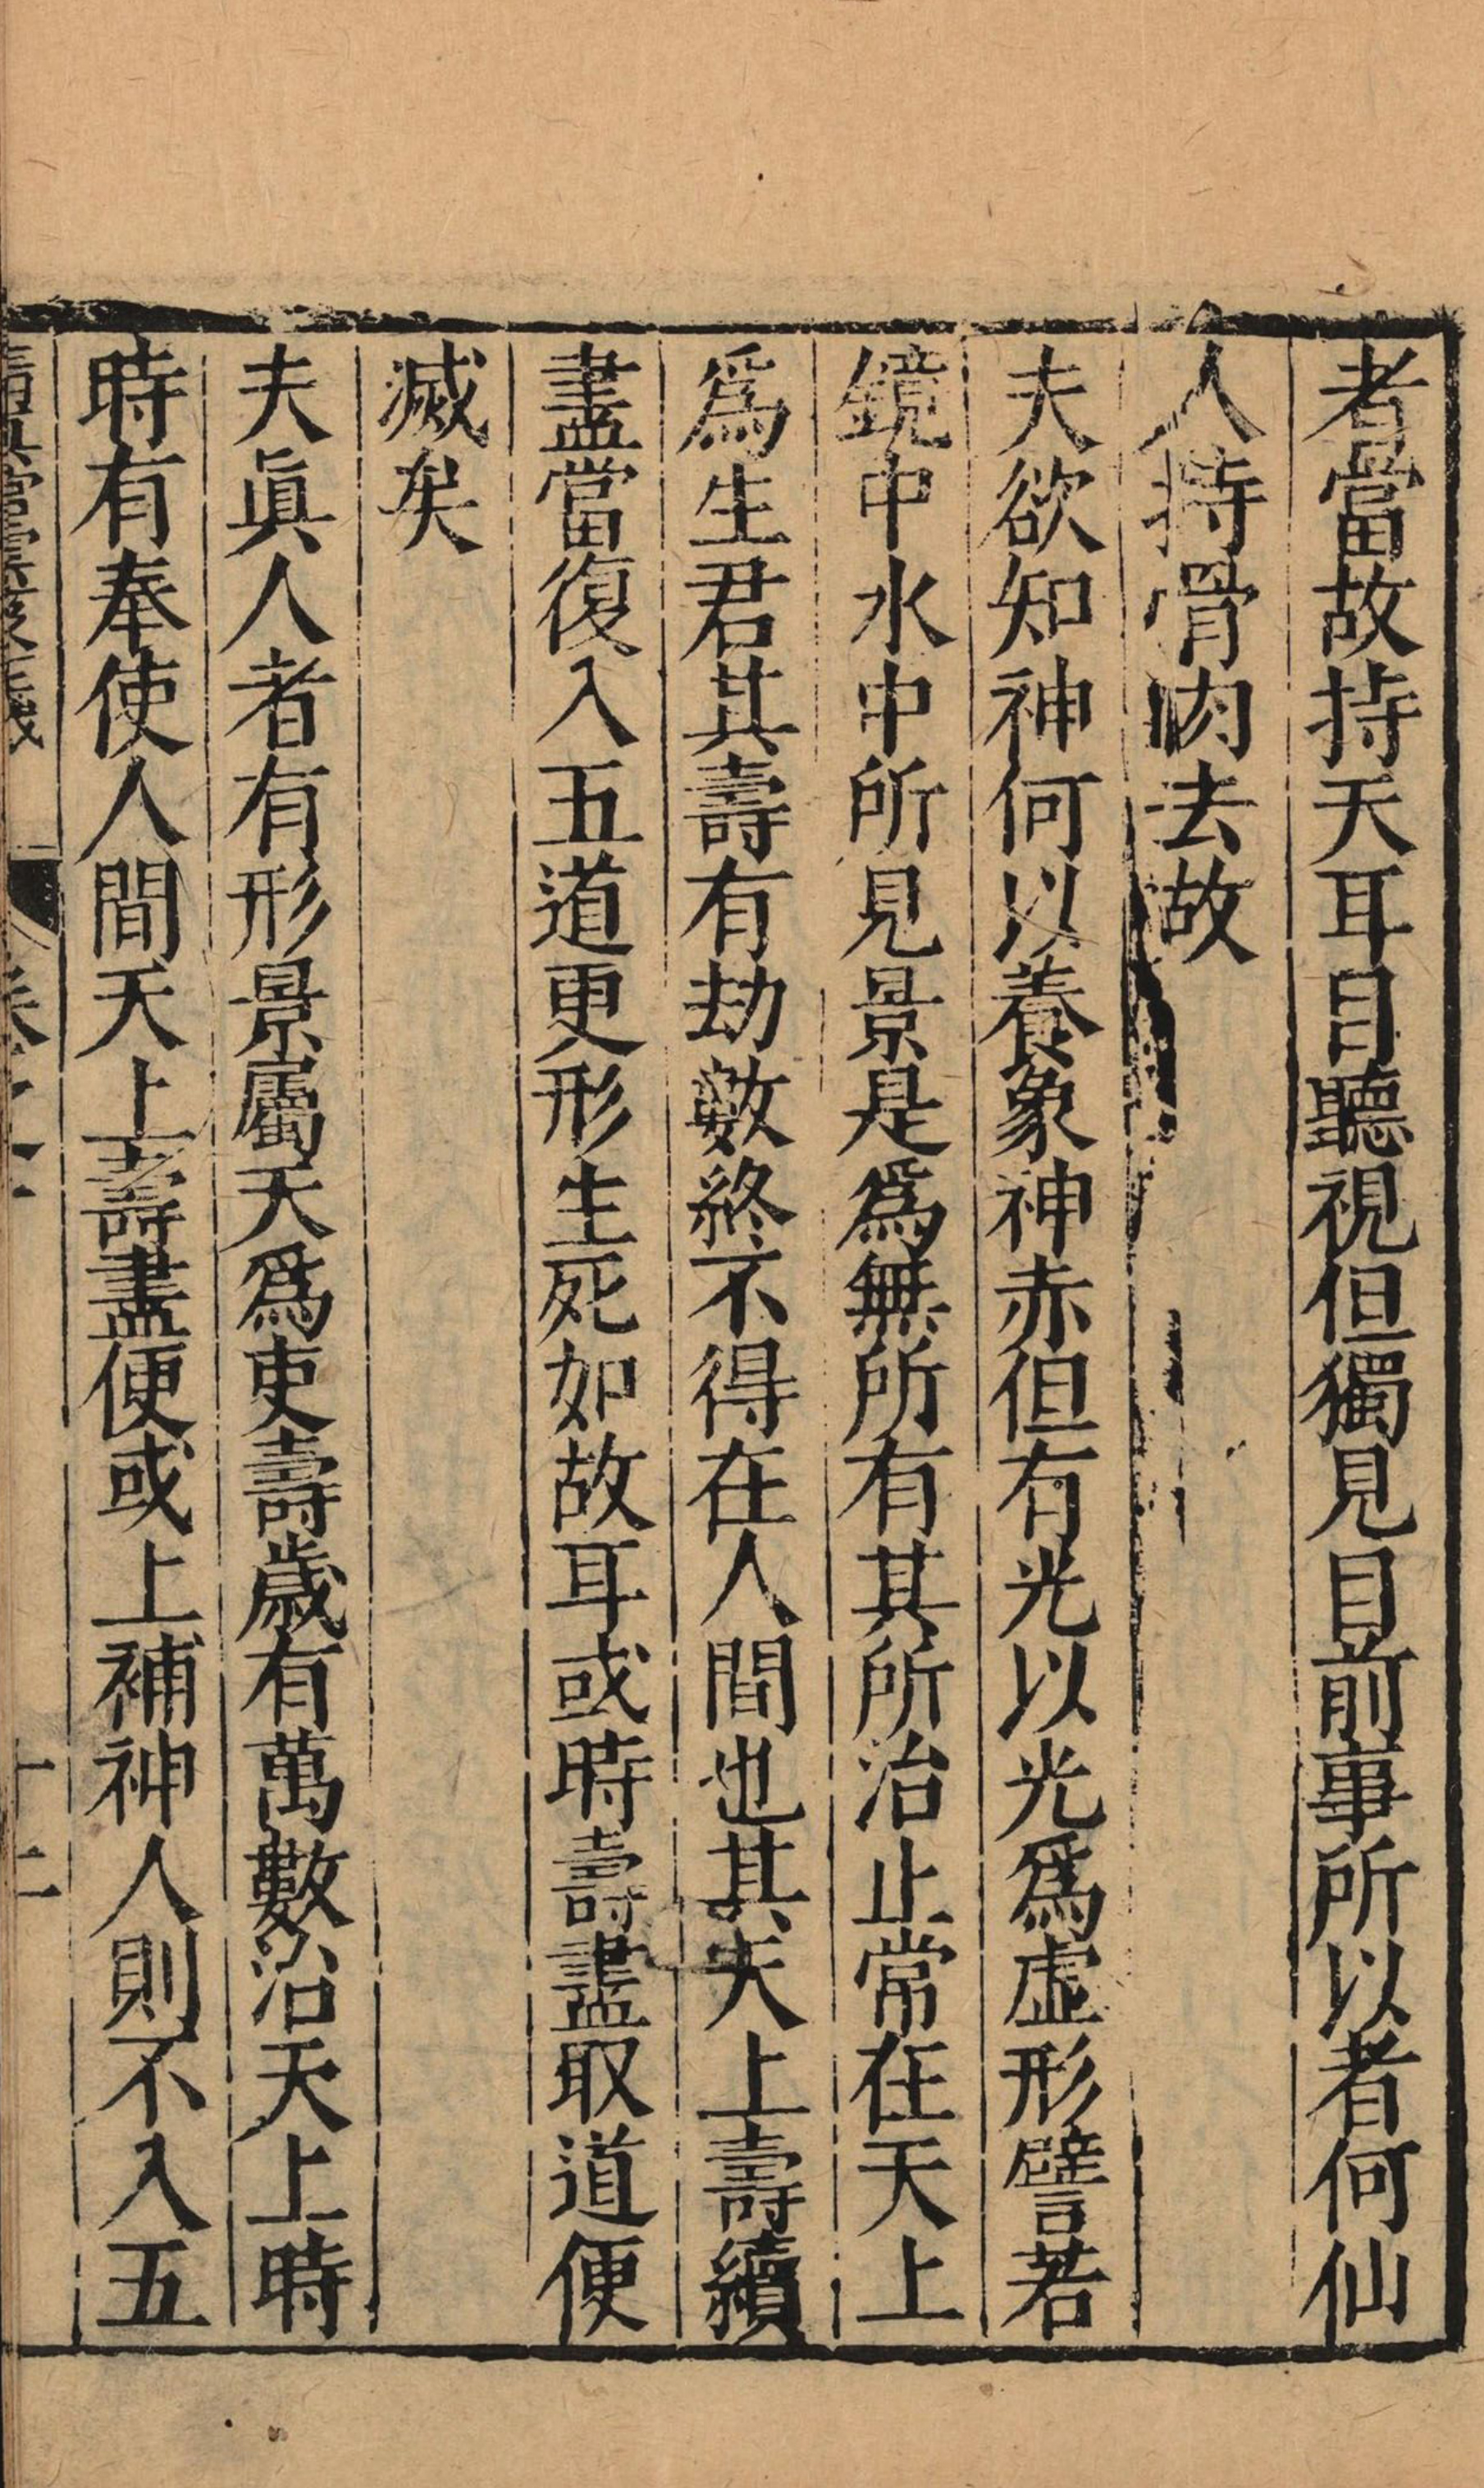 者當故持天耳目聽視但獨見目前事所以者何仙
人持骨肉去故
夫欲知神何以養象神赤但有光以光爲虛形譬若
鏡中水中所見景是爲無所有其所治止常在天上
爲生君其壽有劫數終不得在人間也其夫上壽續
盡當復入五道更形生死如故耳或時壽盡取道便
滅矣
夫眞人者有形景屬天爲吏壽歲有萬數治天上時
時有奉使人間天上壽盡便或上補神人則不入五
十二